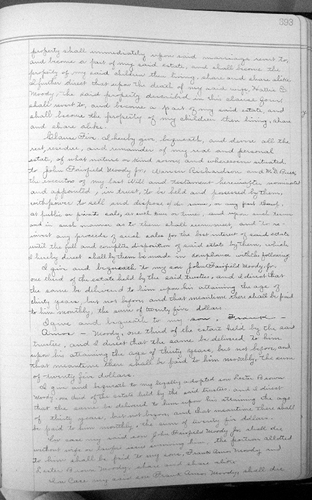 593
property shall immediately upon said marriage revert to,
and become a part of my said estate, and shall become the
property of my said children then living, share and share alike.
I further direct that upon the death of my said wife, Nellie E.
Moody, the said property described in this Clause Four
shall revert to, and become a part of my said estate and
shall become the property of my children then living, share
and share alike.
Clause Five. I hereby give, bequeath, and devise all the
rest, residue, and remainder of my real and personal
estate, of what nature or kind soever, and wheresoever situated,
to John Fairfield Moody Jr., Warren Richardson, and
the executors of my last will and testament hereinafter nominated
and appointed, in trust, to be held and possessed by them,
with power to sell and dispose of the same, or any part thereof,
at public or private sale, at such time or times, and upon such terms
and in such manner as to them shall seem meet, and to
invest any proceeds of such sale for the best interest of said estate
until the full and complete disposition of said estate by them, which
I hereby direct shall by them be made in compliance with the following:
I give and bequeath to my son John Fairfield Moody, Jr.
one third of the estate held by the said trustees, and I direct that
the same be delivered to him upon his attaining the age of
thirty years, but not before, and that meantime there shall be paid
to him monthly, the sum of twenty five dollars.
I give and bequeath to my son
Moody, one third of the estate held by the said
trustees, and I direct that the same be delivered to him
upon his attaining the age of thirty years, but not before, and
that meantime there shall be paid to him monthly, the sum
of twenty five dollars.
I give and bequeath to my legally adopted son Lester
Moody, one third of the estate held by the said trustees and I direct
that the same be delivered to him upon his attaining the age
of thirty years, but not before, and that meantime there shall
be paid to him monthly, the sum of twenty five dollars.
In case my said son John Fairfield Moody Jr. shall die
without wife or lawful issue surviving him, the portion allotted
to him shall be paid to my sons, Moody and
Lester Moody, share and share alike.
In case my said son Moody, shall die